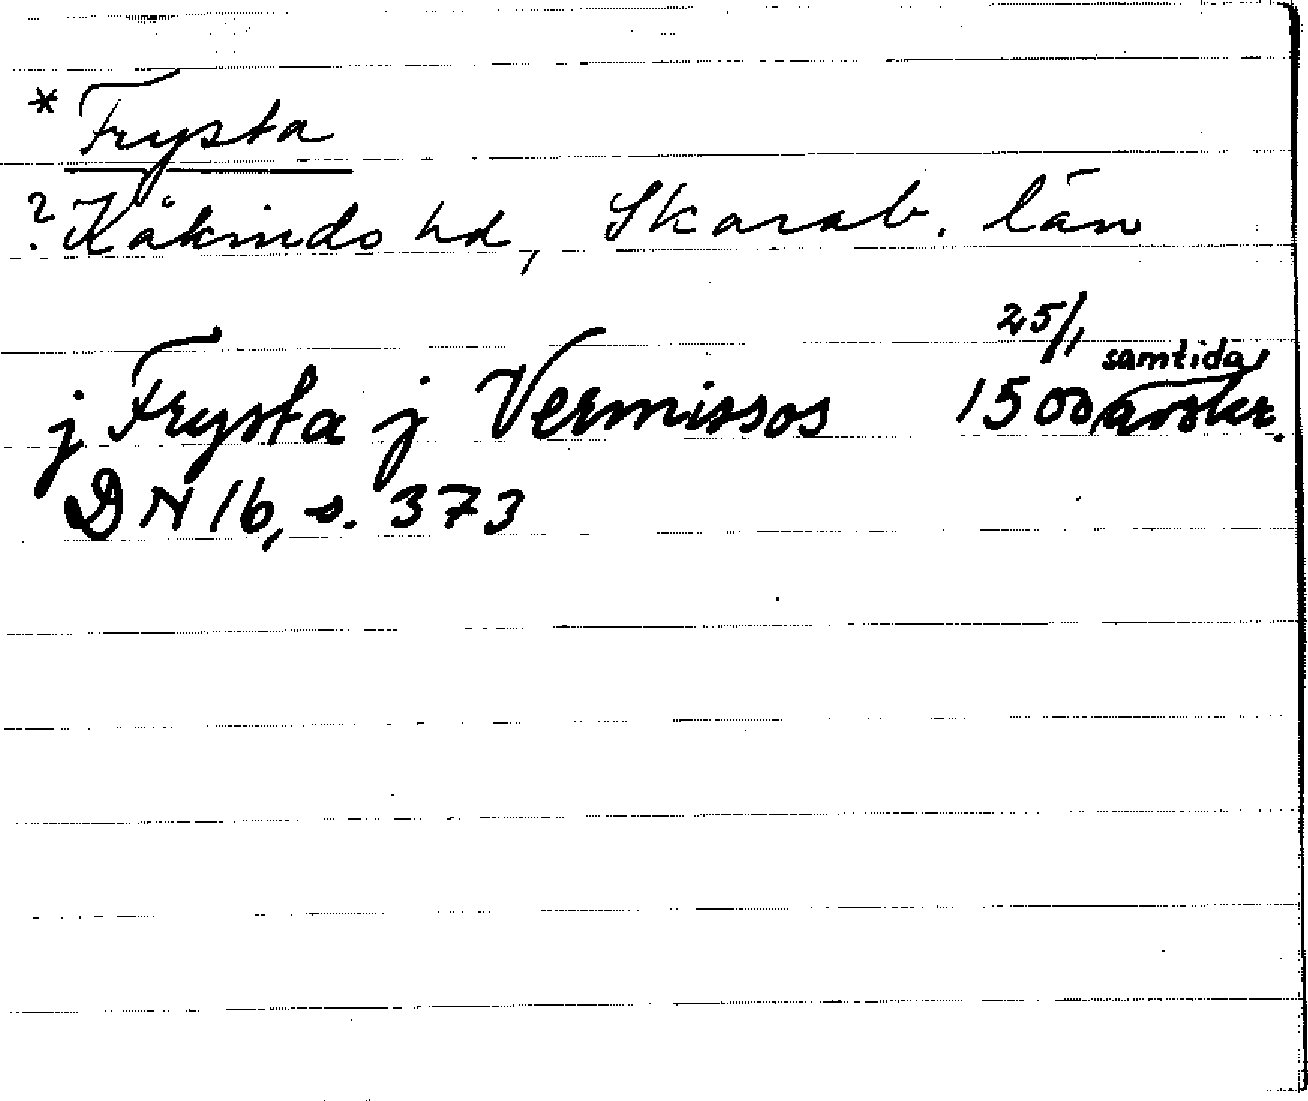 * Frysta
? Kåkinds hd, Skarab. län
j Frysta j Vermissos 25/1 1500 samtida avskr.
DN 16, s. 373